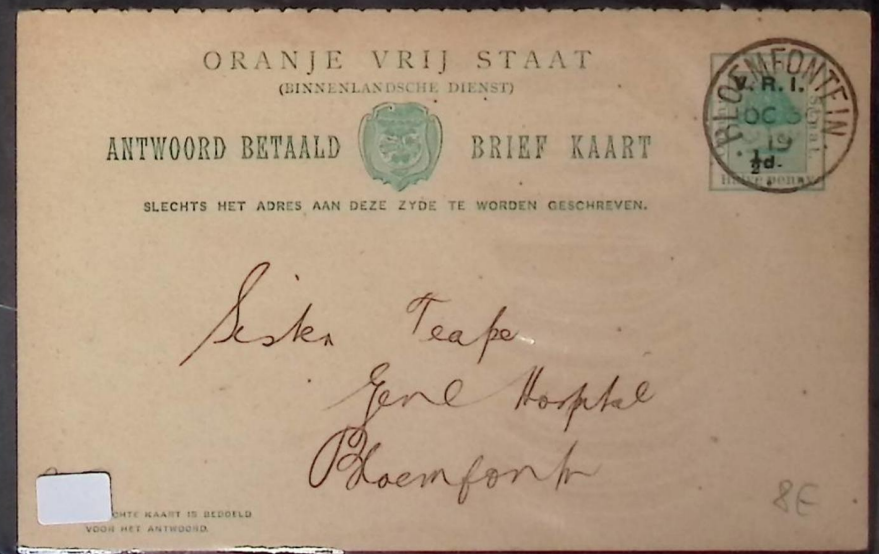 ORANJE VRIJ STAAT
(BINNENLANDSCHE DIENST)
ANTWOORD BETAALD BRIEF KAART
SLECHTS HET ADRES AAN DEZE ZYDE TE WORDEN GESCHREVEN.
BLOEMFONTEIN.
V. R. I.
OC
19
½d.
Halve penny
Sister Teape
Genl Hospital
Bloemfontn
8E
CHTE KAART IS BEDOELD
VOOR HET ANTWOORD.